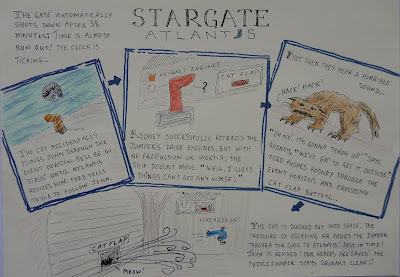 THE GATE AUTOMATICALLY
SHUTS DOWN AFTER 38
MINUTES: TIME IS ALMOST
RUN OUT! THE CLOCK IS
TICKING...
STARGATE
ATLANTIS
THE CAT ACCIDENTALLY
FLINGS JOHN THROUGH THE
EVENT HORIZON. HE'LL BE IN
"STASIS" UNTIL ATLANTIS
REVIVES HIM. FORD TELLS
TEYLA TO FOLLOW JOHN.
RETRACT ENGINES
CAT FLAP
?
RODNEY SUCCESSFULLY RETRACTS THE
JUMPER'S DRIVE ENGINES, BUT WITH
NO PROPULSION OR INERTIA, THE
SHIP DOESN'T MOVE. "WELL, I GUESS
THINGS CAN'T GET ANY WORSE".
BUT THEN THEY HEAR A HORRIBLE
SOUND...
HACK! HACK!
"OH NO! IT'S GONNA THROW UP!" SAYS
RODNEY, "WE'VE GOT TO GET IT OUTSIDE".
FORD PUSHES RODNEY THROUGH THE
EVENT HORIZON, AND PRESSES THE
CAT FLAP BUTTON...
CAT FLAP
MEOW!
THE CAT IS SUCKED OUT INTO SPACE. THE
PRESSURE OF ESCAPING AIR PUSHES THE JUMPER
THROUGH THE GATE TO ATLANTIS, JUST IN TIME!
JOHN IS REVIVED! OUR HEROES ARE SAVED! THE
PUDDLEJUMPER STAYS SQUEAKY CLEAN!!